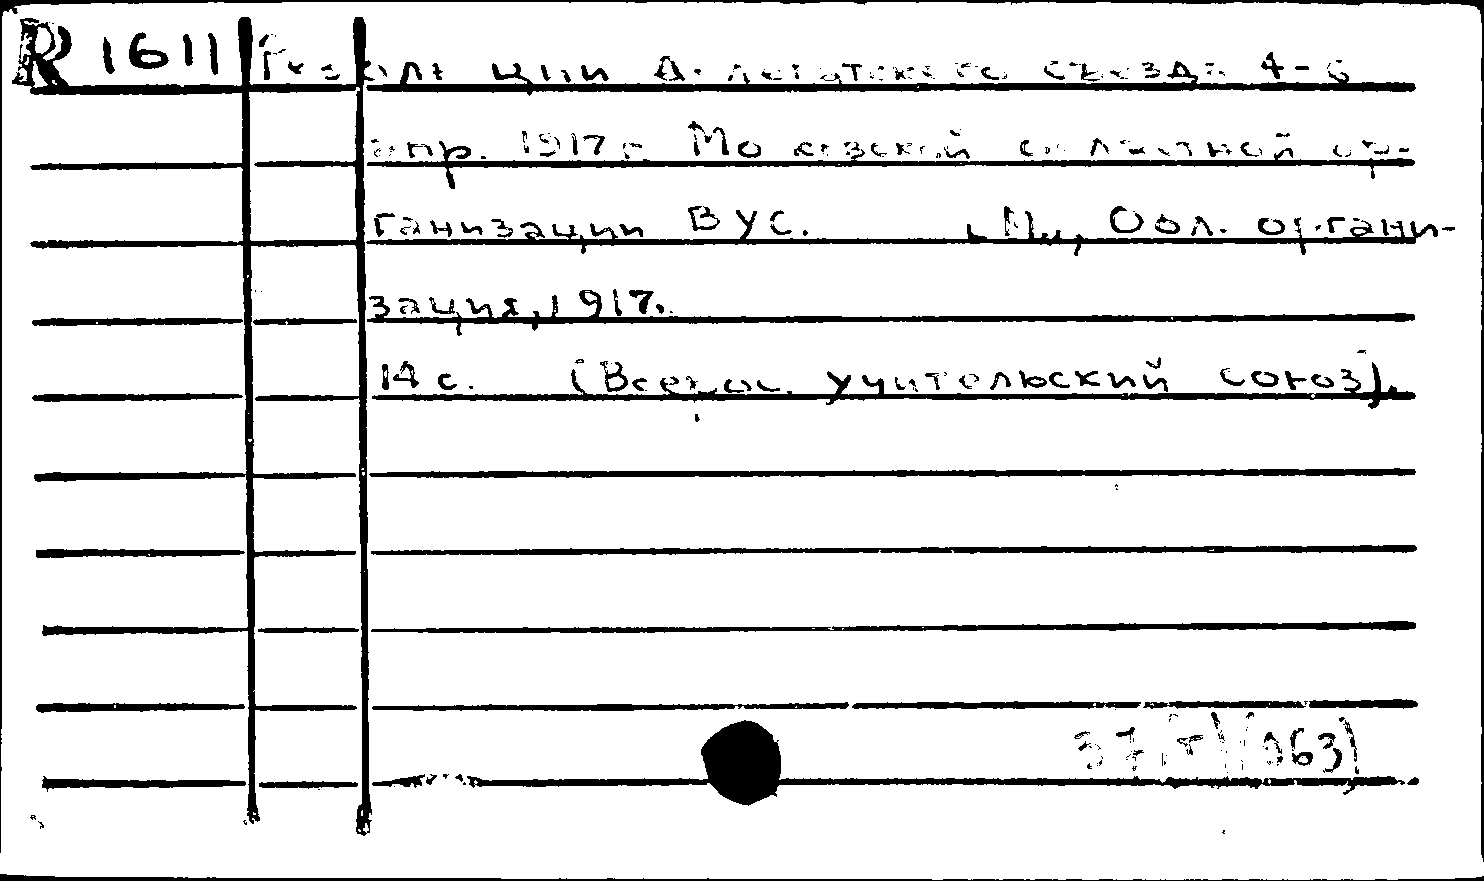 R 1611 Резолюции Делегатского съезда 4-6
апр. 1917 г. Московской областной ор-
ганизации ВУС. М., Обл. органи-
зация, 1917.
14 с. (Всерос. учительский союз).